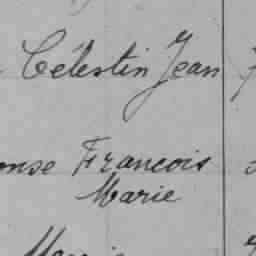 Célestin Jean
onse Francois
Marie